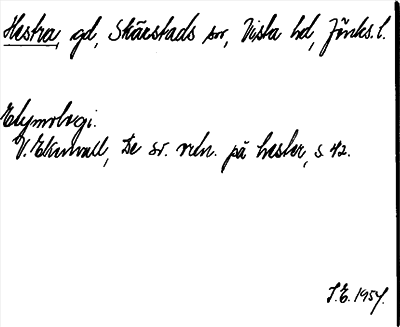 Hestra, gd, Skärstads sn, Vista hd, Jönk.s. l.
Etymologi.
V. Ekenvall, De sv. ortn. på hester, s 42.
S.E. 1954.